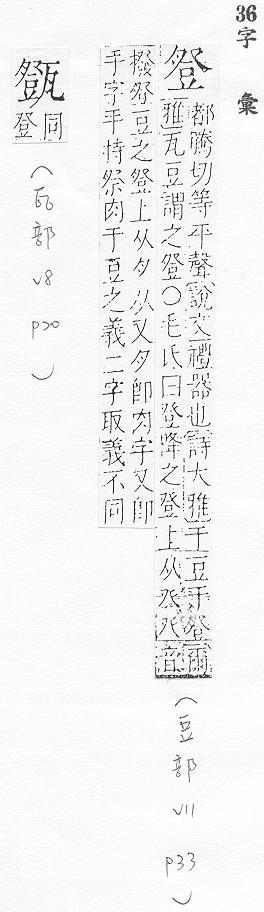 36字 彙
豋
都騰切等平聲說文禮器也詩大雅于豆于豋爾
雅瓦豆謂之豋〇毛氏曰登降之登上从癶癶音
撥祭豆之豋上从夕从又夕卽肉字又卽
手字手持祭肉于豆之義二字取義不同
(豆部 v11 p33)
同
登
(瓦部 v8 p20)